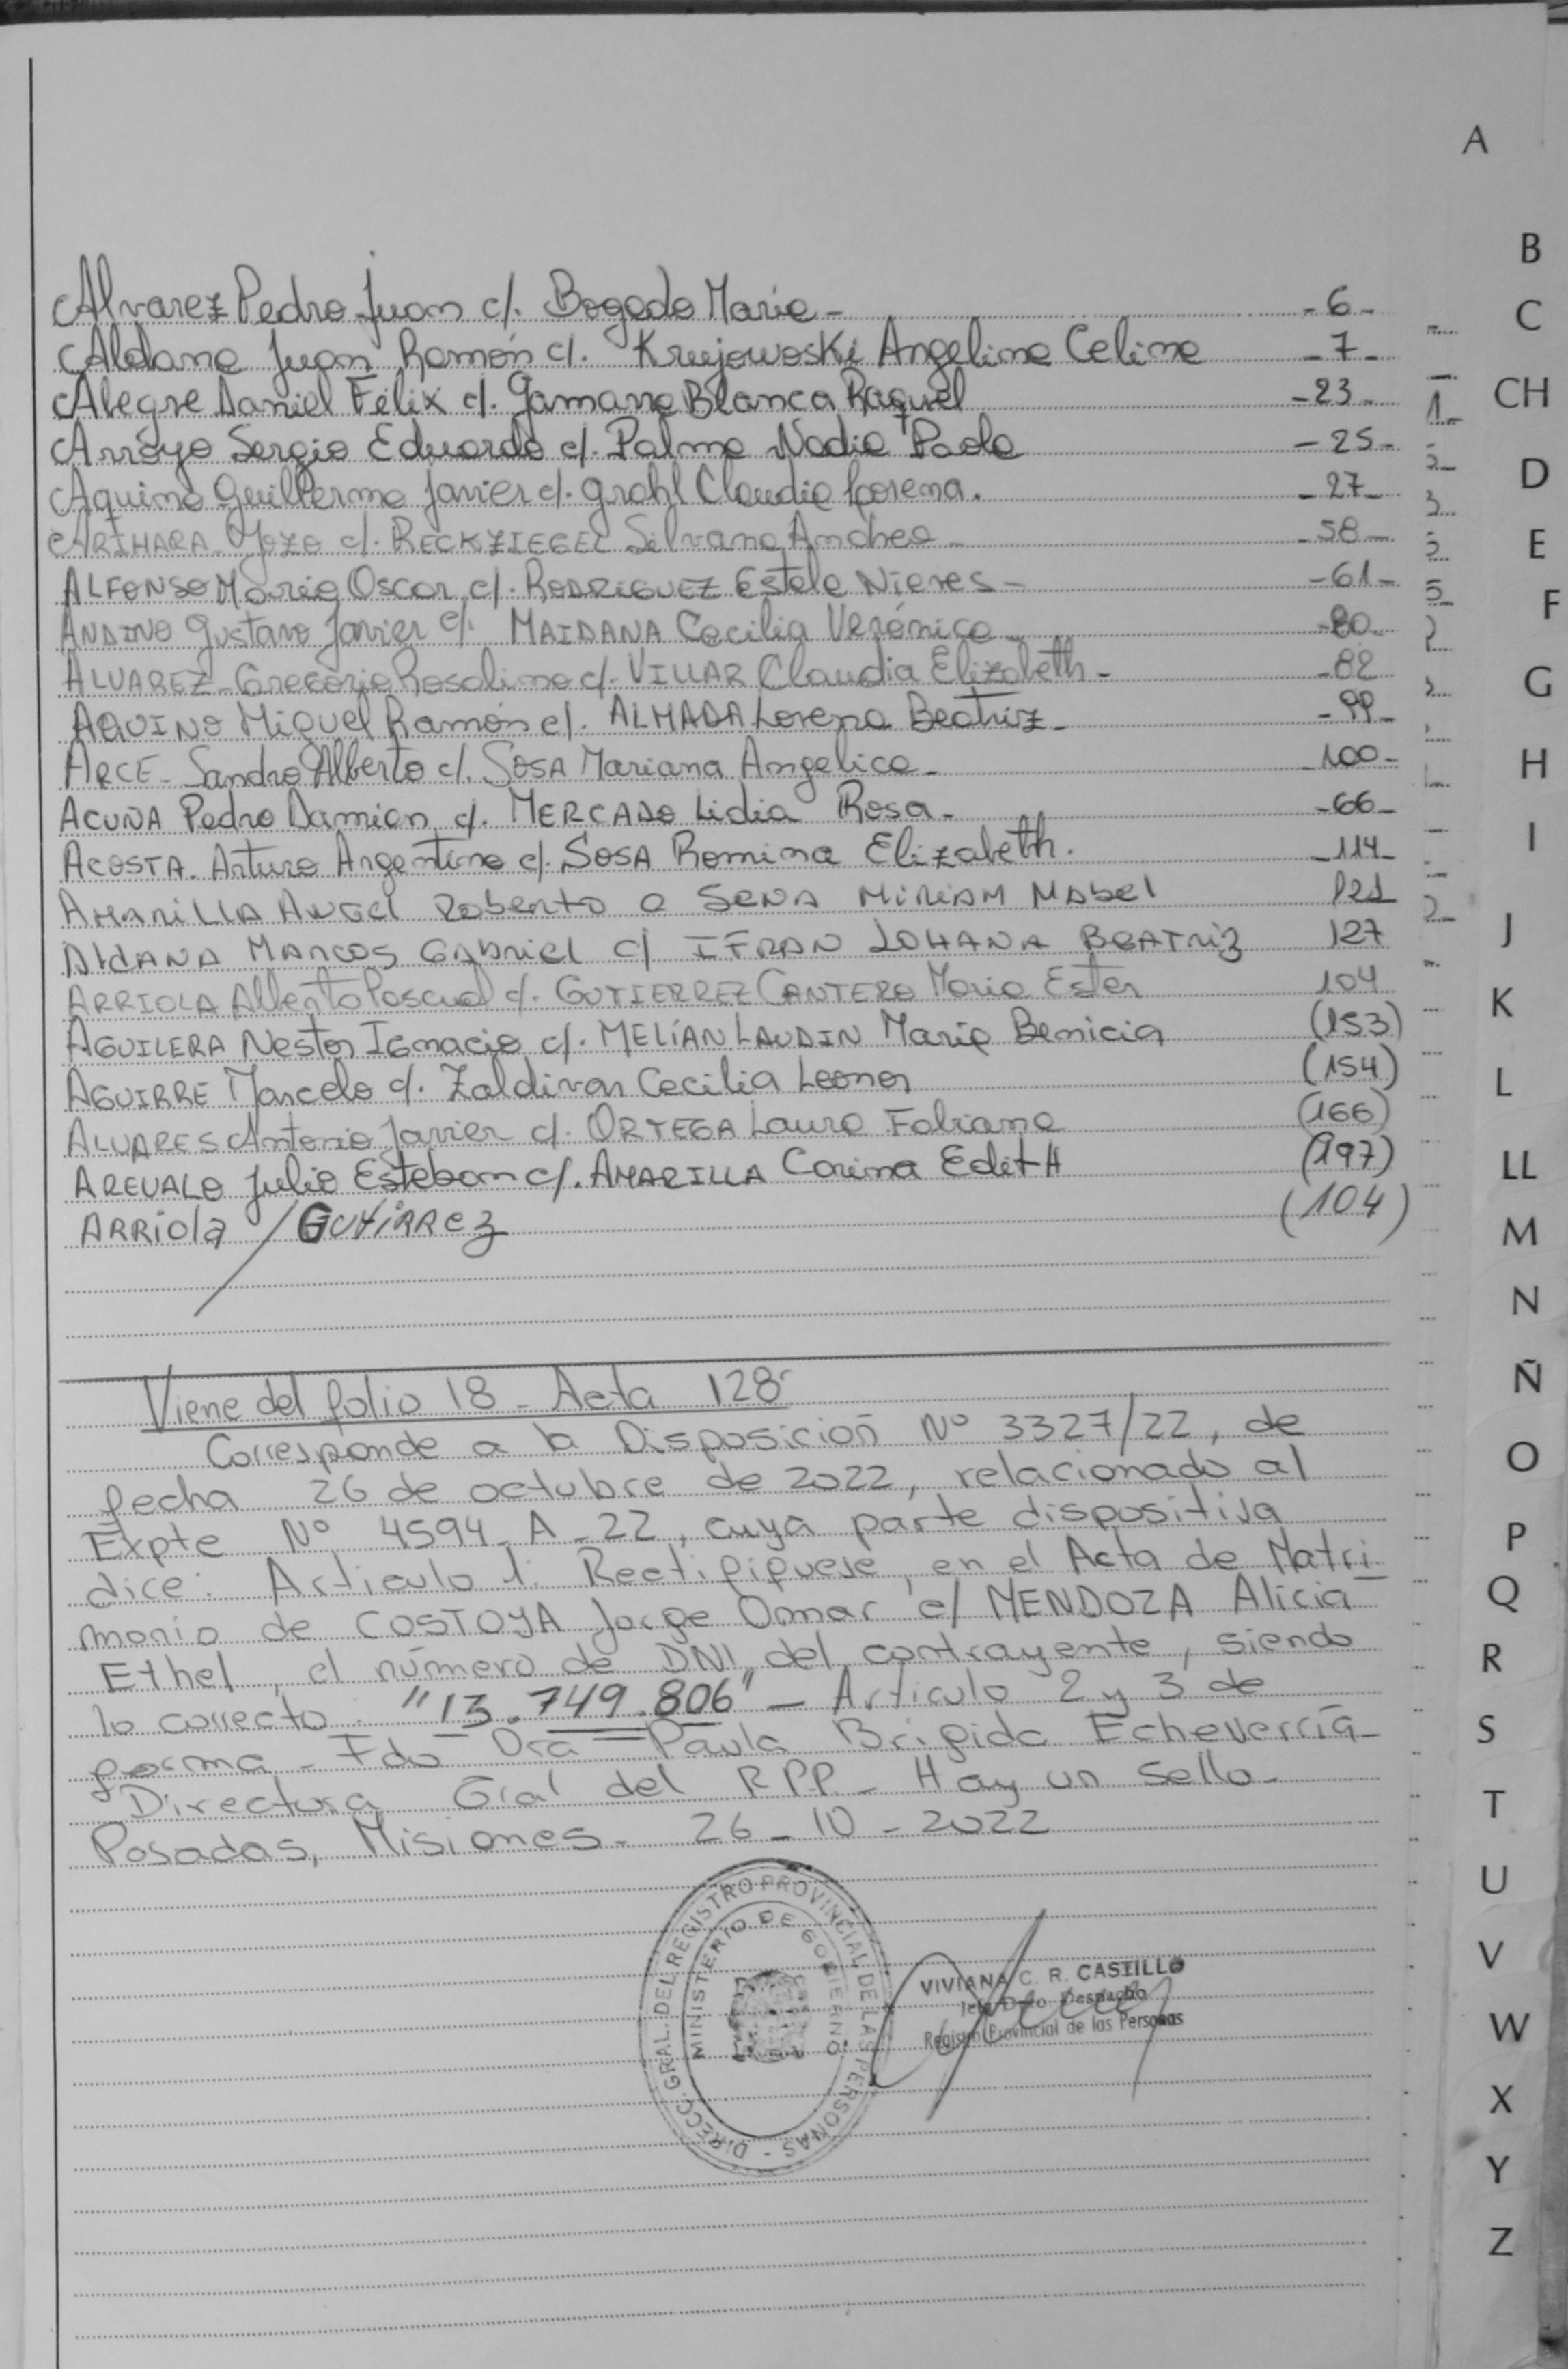 A
B
C
CH
D
E
F
G
H
I
J
K
L
LL
M
N
Ñ
O
P
Q
R
S
T
U
V
W
X
Y
Z
Alvarez Pedro Juan c/. Bogado Maria - -6-
Aldana Juan Ramón c/. Krujowoski Angelina Celina -7-
Alegre Daniel Félix c/. Gamarra Blanca Raquel -23-
Arroyo Sergio Eduardo c/. Palma Nadia Paola -25-
Aquino Guillermo Javier c/. Grahl Claudia Lorena. -27-
ARIHARA c/. RECKZIEGEL Silvana Andrea - -58-
ALFONSO Mario Oscar c/. RODRIGUEZ Estela Nieves - -61-
ANDINO Gustavo Javier c/. MAIDANA Cecilia Verónica - -80-
ALVAREZ - Gregorio Rosalino c/- VILLAR Claudia Elizabeth - -82
AQUINO Miguel Ramón c/. ALMADA Lorena Beatriz - -99-
ARCE - Sandro Alberto c/. SOSA Mariana Angelica - -100-
ACUÑA Pedro Damian c/. MERCADO Lidia Rosa - -66-
ACOSTA. Arturo Argentino c/. SOSA Romina Elizabeth. -114-
AMARILLA ANGEL ROBERTO SENA MIRIAM MABEL 121
ALDANA MARCOS GABRIEL c/ IFRAN JOHANA BEATRIZ 127
ARRIOLA Alberto Pascual c/. GUTIERREZ CANTERO Maria Ester 104
AGUILERA Nestor Ignacio c/. MELÍAN LAUDIN Maria Benicia (153)
AGUIRRE Marcelo c/. Zaldivar Cecilia Leonor (154)
ALVARES Antonio Javier c/. ORTEGA Laura Fabiana (166)
AREVALO Julio Esteban c/. AMARILLA Corina EditH (197)
ARRIOLA / GUTIRREZ (104)
Viene del folio 18 - Acta 128
Corresponde a la Disposición Nº 3327/22, de
fecha 26 de octubre de 2022, relacionado al
Expte Nº 4594 A-22, cuya parte dispositiva
dice: Articulo 1: Rectifiquese, en el Acta de Matri
monio de COSTOYA Jorge Omar c/ MENDOZA Alicia
Ethel, el número de DNI del contrayente, siendo
lo correcto: "13.749.806" - Articulo 2 y 3 de
forma - Fdo Dra Paula Brigida Echeverría -
Directora Gral del RPP - Hay un sello -
Posadas, Misiones - 26-10-2022
DIRECC. GRAL. DEL REGISTRO PROVINCIAL DE LAS PERSONAS -
MINISTERIO DE GOBIERNO
VIVIANA C. R. CASTILLO
Jefa Dpto Despacho
Registro Provincial de las Personas